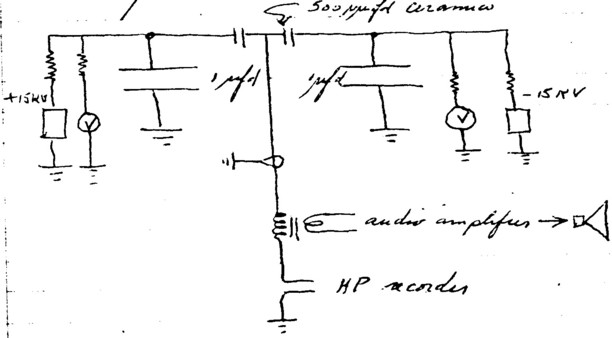 500 μμfd ceramics
1 μfd
1 μfd
+15KV
-15KV
V
V
audio amplifier
HP recorder